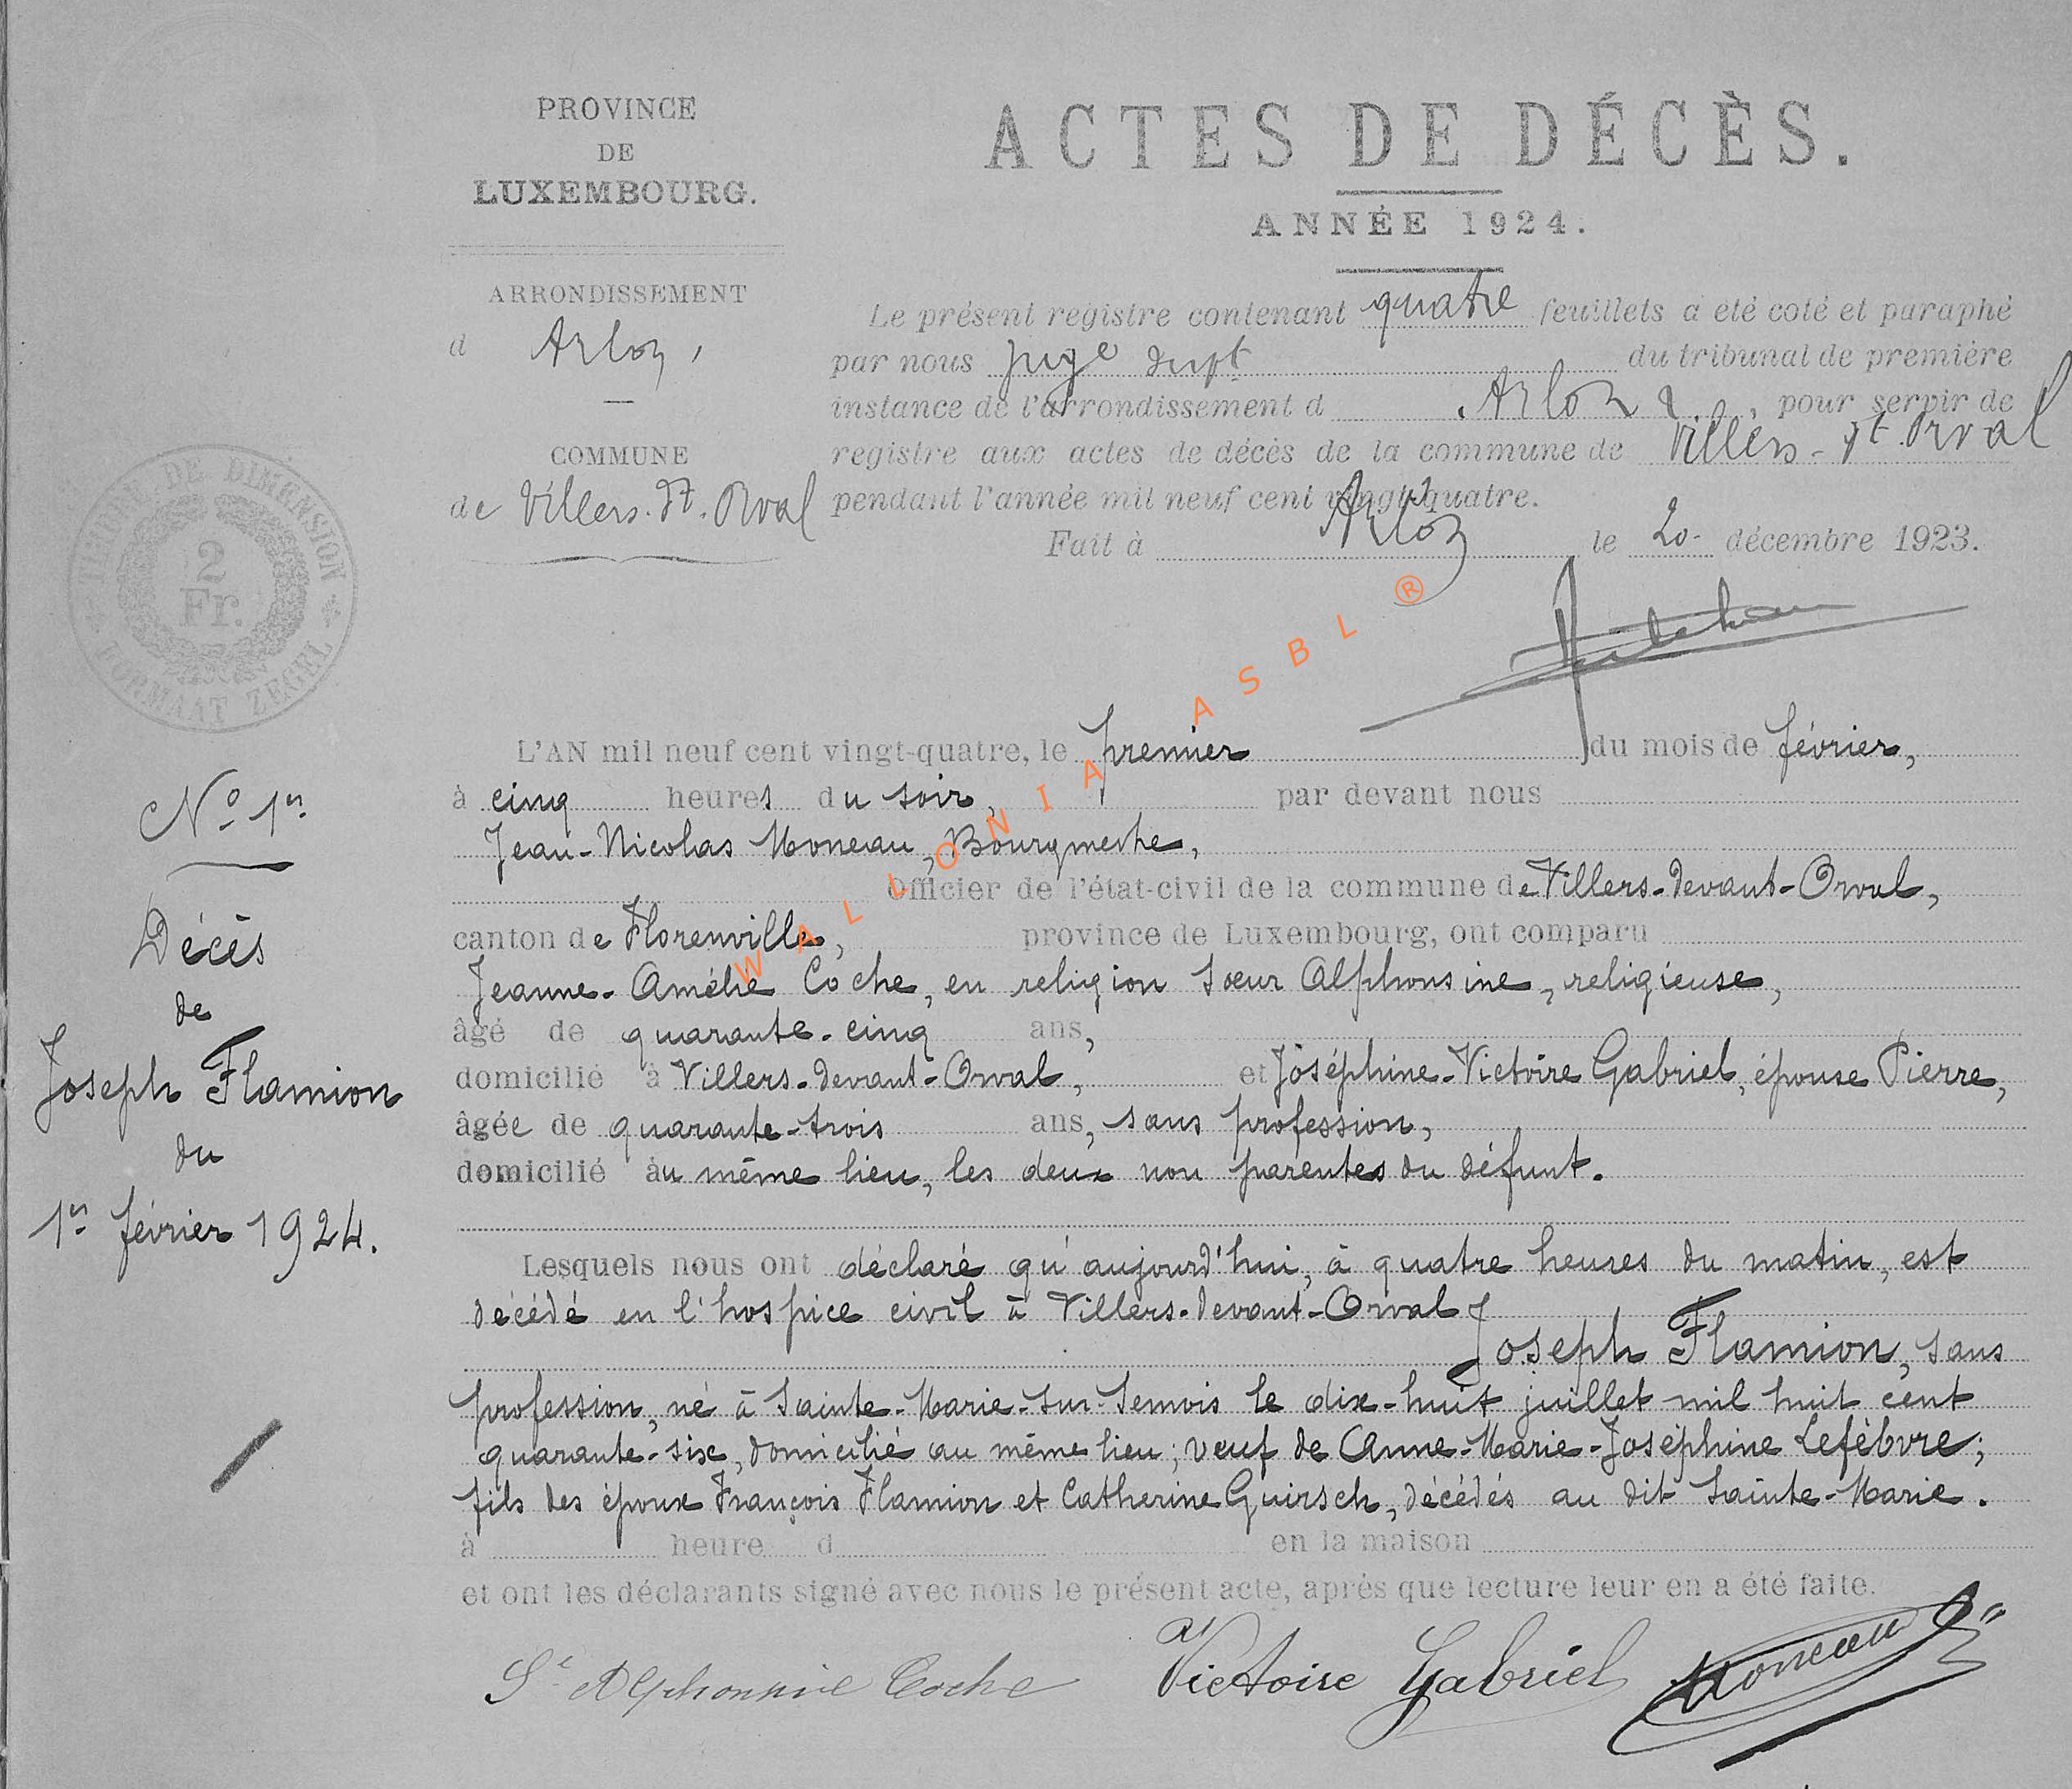 PROVINCE
DE
LUXEMBOURG.
ARRONDISSEMENT
d Arlon,
COMMUNE
de Villers-dt-Orval
ACTES DE DÉCÈS.
ANNÉE 1924.
Le présent registre contenant quatre feuillets a été coté et paraphé
par nous juge du tribunal de première
instance de l'arrondissement d Arlon, pour servir de
registre aux actes de décès de la commune de Villers-dt-Orval
pendant l'année mil neuf cent vingt-quatre.
Fait à Arlon le 20 décembre 1923.
TIMBRE DE DIMENSION
2
Fr.
FORMAAT ZEGEL
WALLONIA ASBL ®
L'AN mil neuf cent vingt-quatre, le premier du mois de février,
à cinq heures du soir, par devant nous
Jean-Nicolas Moneau, Bourgmestre,
Officier de l'état-civil de la commune de Villers-devant-Orval,
canton de Florenville, province de Luxembourg, ont comparu
Jeanne-Amélie Coche, en religion Sœur Alphonsine, religieuse,
âgé de quarante-cinq ans,
domicilié à Villers-devant-Orval, et Joséphine-Victoire Gabriel, épouse Pierre,
âgée de quarante-trois ans, sans profession,
domicilié au même lieu, les deux non parentes du défunt.
Lesquels nous ont déclaré qu'aujourd'hui, à quatre heures du matin, est
décédé en l'hospice civil à Villers-devant-Orval
Joseph Flamion, sans
profession, né à Sainte-Marie-sur-Semois le dix-huit juillet mil huit cent
quarante-six, domicilié au même lieu; veuf de Anne-Marie-Joséphine Lefèbvre;
fils des époux François Flamion et Catherine Guirsch, décédés au dit Sainte-Marie.
à heure d en la maison
et ont les déclarants signé avec nous le présent acte, après que lecture leur en a été faite.
Sr Alphonsine Coche Victoire Gabriel Moneau
No 1er
Décès
de
Joseph Flamion
du
1er février 1924.